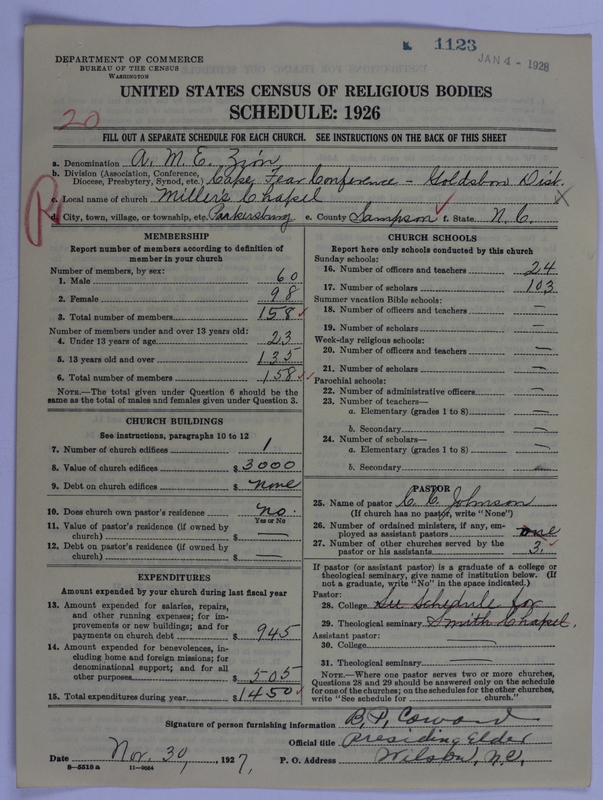 1123
JAN 4 - 1928
DEPARTMENT OF COMMERCE
BUREAU OF THE CENSUS
WASHINGTON
UNITED STATES CENSUS OF RELIGIOUS BODIES
SCHEDULE: 1926
20
FILL OUT A SEPARATE SCHEDULE FOR EACH CHURCH. SEE INSTRUCTIONS ON THE BACK OF THIS SHEET
a. Denomination A. M. E. Zion
b. Division (Association, Conference, Diocese, Presbytery, Synod, etc.) Cape Fear Conference - Goldsboro Dist.
c. Local name of church Millers Chapel X
R
d. City, town, village, or township, etc. Parkersburg e. County Sampson f. State N. C.
MEMBERSHIP
Report number of members according to definition of
member in your church
Number of members, by sex:
1. Male 60
2. Female 98
3. Total number of members 158
Number of members under and over 13 years old:
4. Under 13 years of age 23
5. 13 years old and over 135
6. Total number of members 158
NOTE.—The total given under Question 6 should be the
same as the total of males and females given under Question 3.
CHURCH BUILDINGS
See instructions, paragraphs 10 to 12
7. Number of church edifices 1
8. Value of church edifices $ 3000
9. Debt on church edifices $ none
10. Does church own pastor's residence no.
Yes or No
11. Value of pastor's residence (if owned by
church) $ —
12. Debt on pastor's residence (if owned by
church) $ —
EXPENDITURES
Amount expended by your church during last fiscal year
13. Amount expended for salaries, repairs,
and other running expenses; for im-
provements or new buildings; and for
payments on church debt $ 945
14. Amount expended for benevolences, in-
cluding home and foreign missions; for
denominational support; and for all
other purposes $ 505
15. Total expenditures during year $ 1450
CHURCH SCHOOLS
Report here only schools conducted by this church
Sunday schools:
16. Number of officers and teachers 24
17. Number of scholars 103
Summer vacation Bible schools:
18. Number of officers and teachers —
19. Number of scholars —
Week-day religious schools:
20. Number of officers and teachers —
21. Number of scholars —
Parochial schools:
22. Number of administrative officers —
23. Number of teachers—
a. Elementary (grades 1 to 8) —
b. Secondary —
24. Number of scholars—
a. Elementary (grades 1 to 8) —
b. Secondary —
PASTOR
25. Name of pastor C. C. Johnson
(If church has no pastor, write "None")
26. Number of ordained ministers, if any, em-
ployed as assistant pastors one
27. Number of other churches served by the
pastor or his assistants 3.
If pastor (or assistant pastor) is a graduate of a college or
theological seminary, give name of institution below. (If
not a graduate, write "No" in the space indicated.)
Pastor:
28. College See Schedule for
29. Theological seminary Smith Chapel.
Assistant pastor:
30. College —
31. Theological seminary —
NOTE.—Where one pastor serves two or more churches,
Questions 28 and 29 should be answered only on the schedule
for one of the churches; on the schedules for the other churches,
write "See schedule for church."
Signature of person furnishing information B. P. Coward
Official title Presiding Elder
Date Nov. 30, 1927, P. O. Address Wilson, N.C.
8—5518 a 11—9064